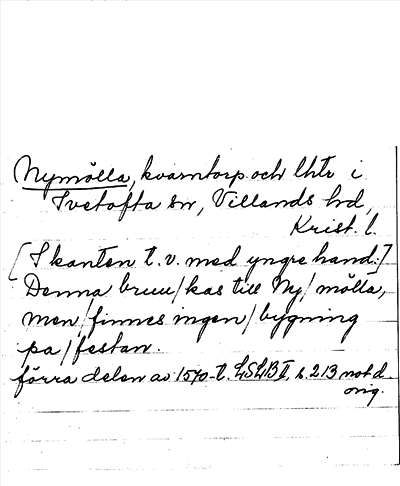 Nymölla, kvarntorp och lht i
Ivetofta sn, Villands hd,
Krist. l.
[I kanten t.v. med yngre hand:]
Denna bruu/kas till Ny/mölla,
men/finnes ingen/bygning
pa/festan.
förra delen av 1570-t. LSLB II, s. 213 not d.
orig.